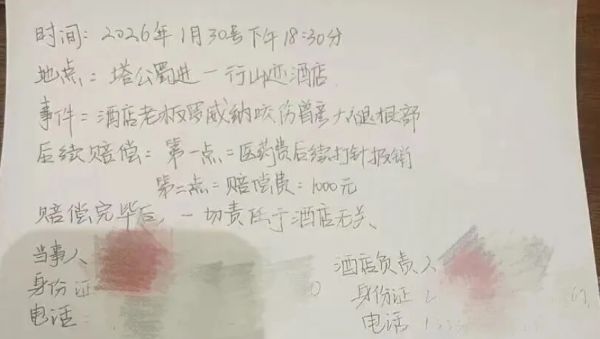 时间: 2026年1月30号下午18:30分
地点: 塔公蜀进一行山迹酒店
事件: 酒店老板 威纳咬伤 大腿根部
后续赔偿: 第一点: 医药费后续打针报销
第二点: 赔偿费: 1000元
赔偿完毕后, 一切责任于酒店无关
当事人
身份证
电话
酒店负责人
身份证
电话